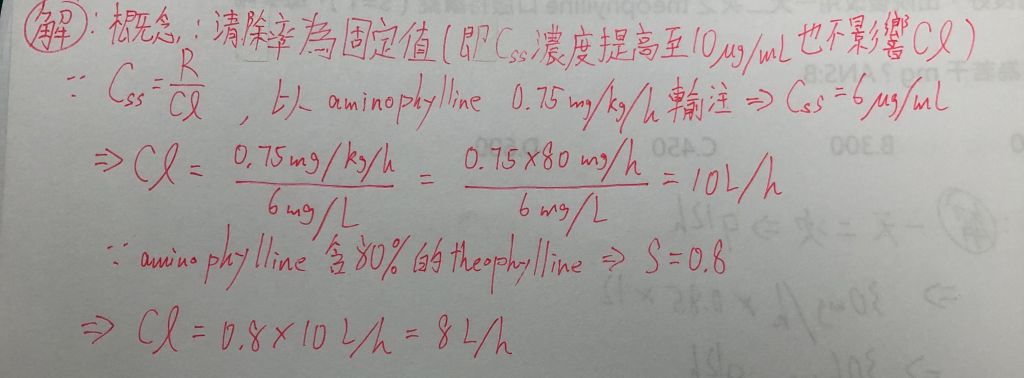 解:概念:清除率為固定值(即Css濃度提高至10μg/mL也不影響Cl)
∵ Css = R/Cl , 以 aminophylline 0.75 mg/kg/h 輸注 ⇒ Css = 6 μg/mL
⇒ Cl = 0.75 mg/kg/h / 6 mg/L = 0.75×80 mg/h / 6 mg/L = 10 L/h
∵ aminophylline 含80%的theophylline ⇒ S = 0.8
⇒ Cl = 0.8 × 10 L/h = 8 L/h